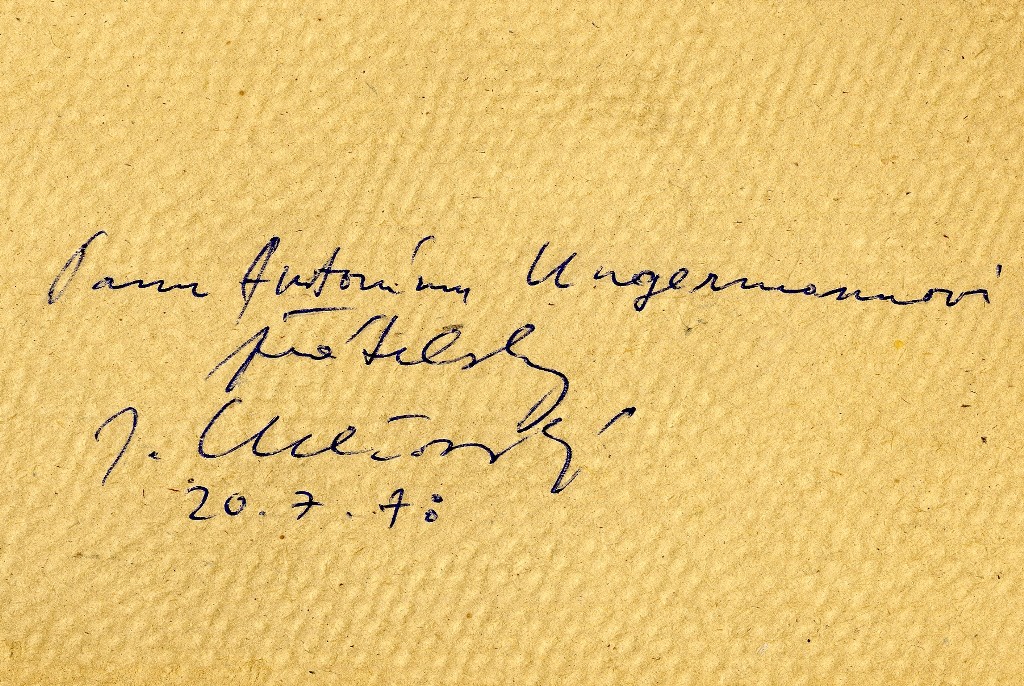 Panu Antonínu Ungermannovi
přátelsky
J.
20.7.78